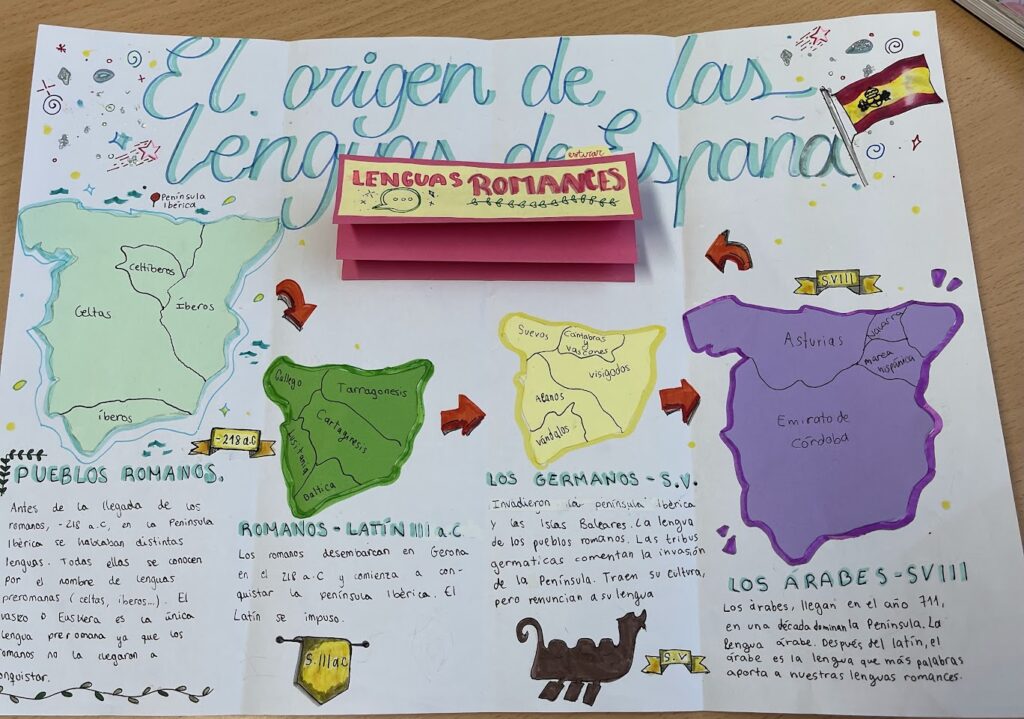 El origen de las
lenguas de España.
estirar
LENGUAS ROMANCES
Península
Ibérica
Celtíberos
Celtas
Íberos
íberos
-218 a.C
PUEBLOS ROMANOS.
Antes de la llegada de los
romanos, -218 a.C, en la Península
Ibérica se hablaban distintas
lenguas. Todas ellas se conocen
por el nombre de lenguas
preromanas (celtas, íberos...). El
vasco o Euskera es la única
lengua preromana ya que los
romanos no la llegaron a
conquistar.
Gallego
Tarragonesis
Cartagonesis
Lusitania
Baltica
ROMANOS - LATÍN III a.C
Los romanos desembarcan en Gerona
en el 218 a.C y comienza a con-
quistar la península Ibérica. El
Latín se impuso.
S.III a.C
Suevos
Cántabras
y
vascones
visigodos
Alanos
vándalos
LOS GERMANOS - S.V.
Invadieron la península Ibérica
y las Islas Baleares. La lengua
de los pueblos romanos. Las tribus
germaticas comentan la invasión
de la Península. Traen su cultura,
pero renuncian a su lengua
S.V
SVIII
Asturias
Navarra
Marca
hispánica
Emirato de
Córdoba
LOS ÁRABES - SVIII
Los árabes, llegan en el año 711,
en una década dominan la Península. La
lengua árabe. Después del latín, el
árabe es la lengua que más palabras
aporta a nuestras lenguas romances.